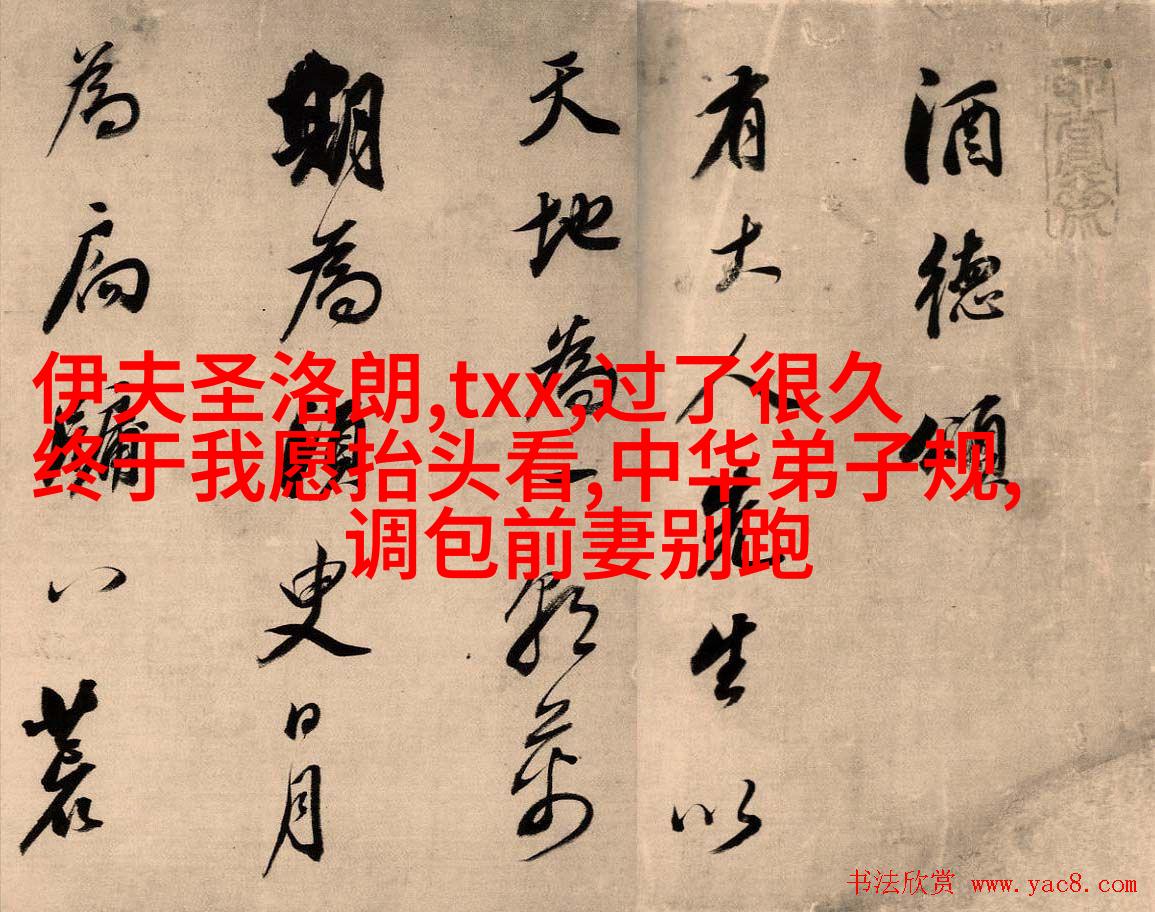 酒德頌
有大人先生以
天地為一朝萬
期為須臾日月
為扃牖八荒
伊夫圣洛朗,txx,过了很久
终于我愿抬头看,中华弟子规,
调包前妻别跑
书法欣赏 www.yac8.com